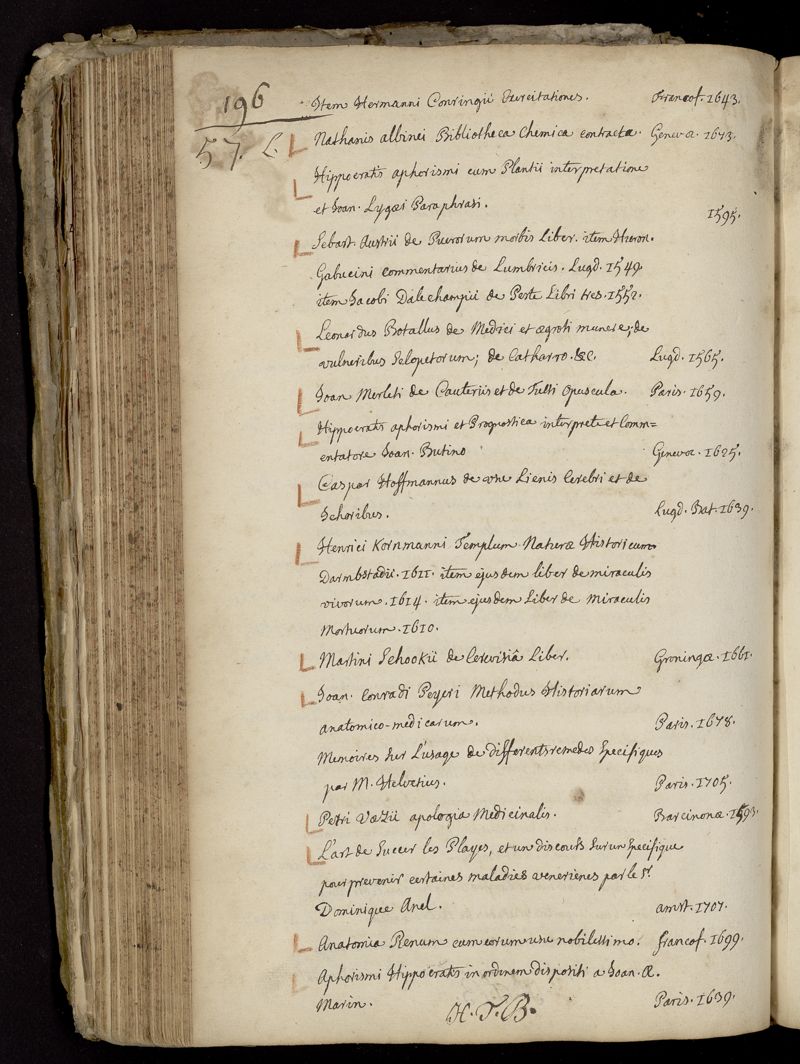 196
57. L.
Item Hermanni Conringii Exercitationes. Francof. 1643.
Nathanis albinei Bibliotheca Chemica contracta. Genevæ. 1673.
Hippocratis aphorismi cum Plantii interpretatione
et Joan. Lygæi Paraphrasi. 1595.
Sebast. Austrii de Puerorum morbis Liber. item Hieron.
Gabucini commentarius de Lumbricis. Lugd. 1549.
item Jacobi Dalechampii de Peste Libri tres. 1552.
Leonardus Botallus de Medici et ægroti munere; de
vulneribus Sclopetorum; de Catharro. &c. Lugd. 1565.
Joan Merleti de Cauteriis et de Tussi Opuscula. Paris. 1659.
Hippocratis aphorismi et Prognostica interprete et Comm=
entatore Joan. Butino Genevæ. 1625.
Caspar Hoffmannus de usu Lienis Cerebri et de
Ichoribus. Lugd. Bat. 1639.
Henrici Kornmanni Templum Naturæ Historicum
Darmbstadii. 1611. item ejusdem liber de miraculis
vivorum. 1614. item ejusdem Liber de Miraculis
Mortuorum. 1610.
Martini Schookii de Cerevisiâ Liber. Groningæ. 1661.
Joan. Conradi Peyeri Methodus Historiarum
anatomico-medicarum. Paris. 1678.
Memoires sur L'usage de differents remedes Specifiques
par M. Helvetius. Paris. 1705.
Petri Vaezii apologia Medicinalis. Barcinonæ. 1593.
L'art de Succer les Playes, et un discours sur un Specifique
pour prevenir certaines maladies venerienes par le Sr.
Dominique Anel. amst. 1707.
Anatomia Renum cum eorum usu nobilissimo. francof. 1699.
Aphorismi Hippocratis in ordinem dispositi a Joan. Æ.
Marin. Paris. 1639.
H. T. B.